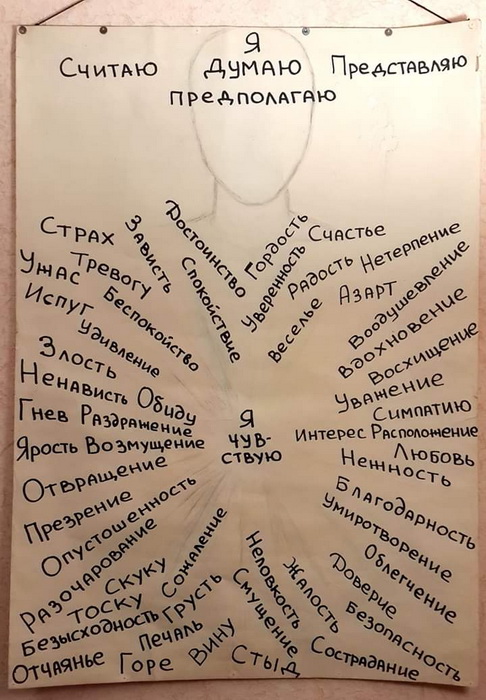 Я
Считаю Думаю Представляю
предполагаю
Достоинство
Зависть
Спокойствие
Гордость
Уверенность
Счастье
Радость
Нетерпение
Веселье
Азарт
Страх
Тревогу
Ужас
Беспокойство
Испуг
Удивление
Злость
Ненависть Обиду
Гнев Раздражение
Ярость Возмущение
Отвращение
Презрение
Опустошенность
Разочарование
Воодушевление
Вдохновение
Восхищение
Уважение
Симпатию
Интерес Расположение
Любовь
Нежность
Благодарность
Умиротворение
Облегчение
Я
чув-
ствую
Скуку
Тоску
Сожаление
Безысходность
Грусть
Отчаянье
Печаль
Горе
Вину
Неловкость
Смущение
Стыд
Жалость
Доверие
Безопасность
Сострадание